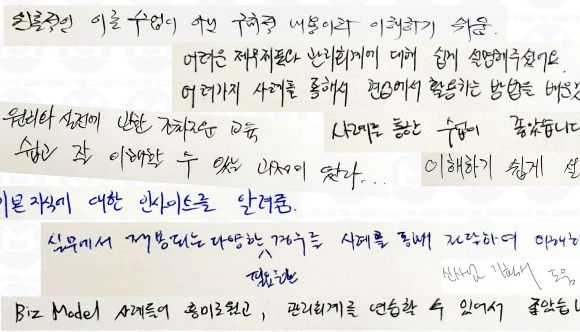 이론 수업이 아닌 구체적 내용이라 이해하기 쉬움.
어려운 재무제표와 관리회계에 대해 쉽게 설명해주셨어요.
여러가지 사례를 통해서 현업에서 활용하는 방법을 배웠
원리와 실전에 만한 조화로운 교육
사례를 통한 수업이 좋았습니다
쉽고 잘 이해할 수 있는 과정이 었다...
이해하기 쉽게 설
기본 지식에 대한 인사이트를 알려줌.
실무에서 적용되는 다양한 경우를 사례를 통해 자각하여 이해하
필요한
신사업 기획에 도움
Biz Model 사례들이 흥미로웠고, 관리회계를 연습할 수 있어서 좋았습니